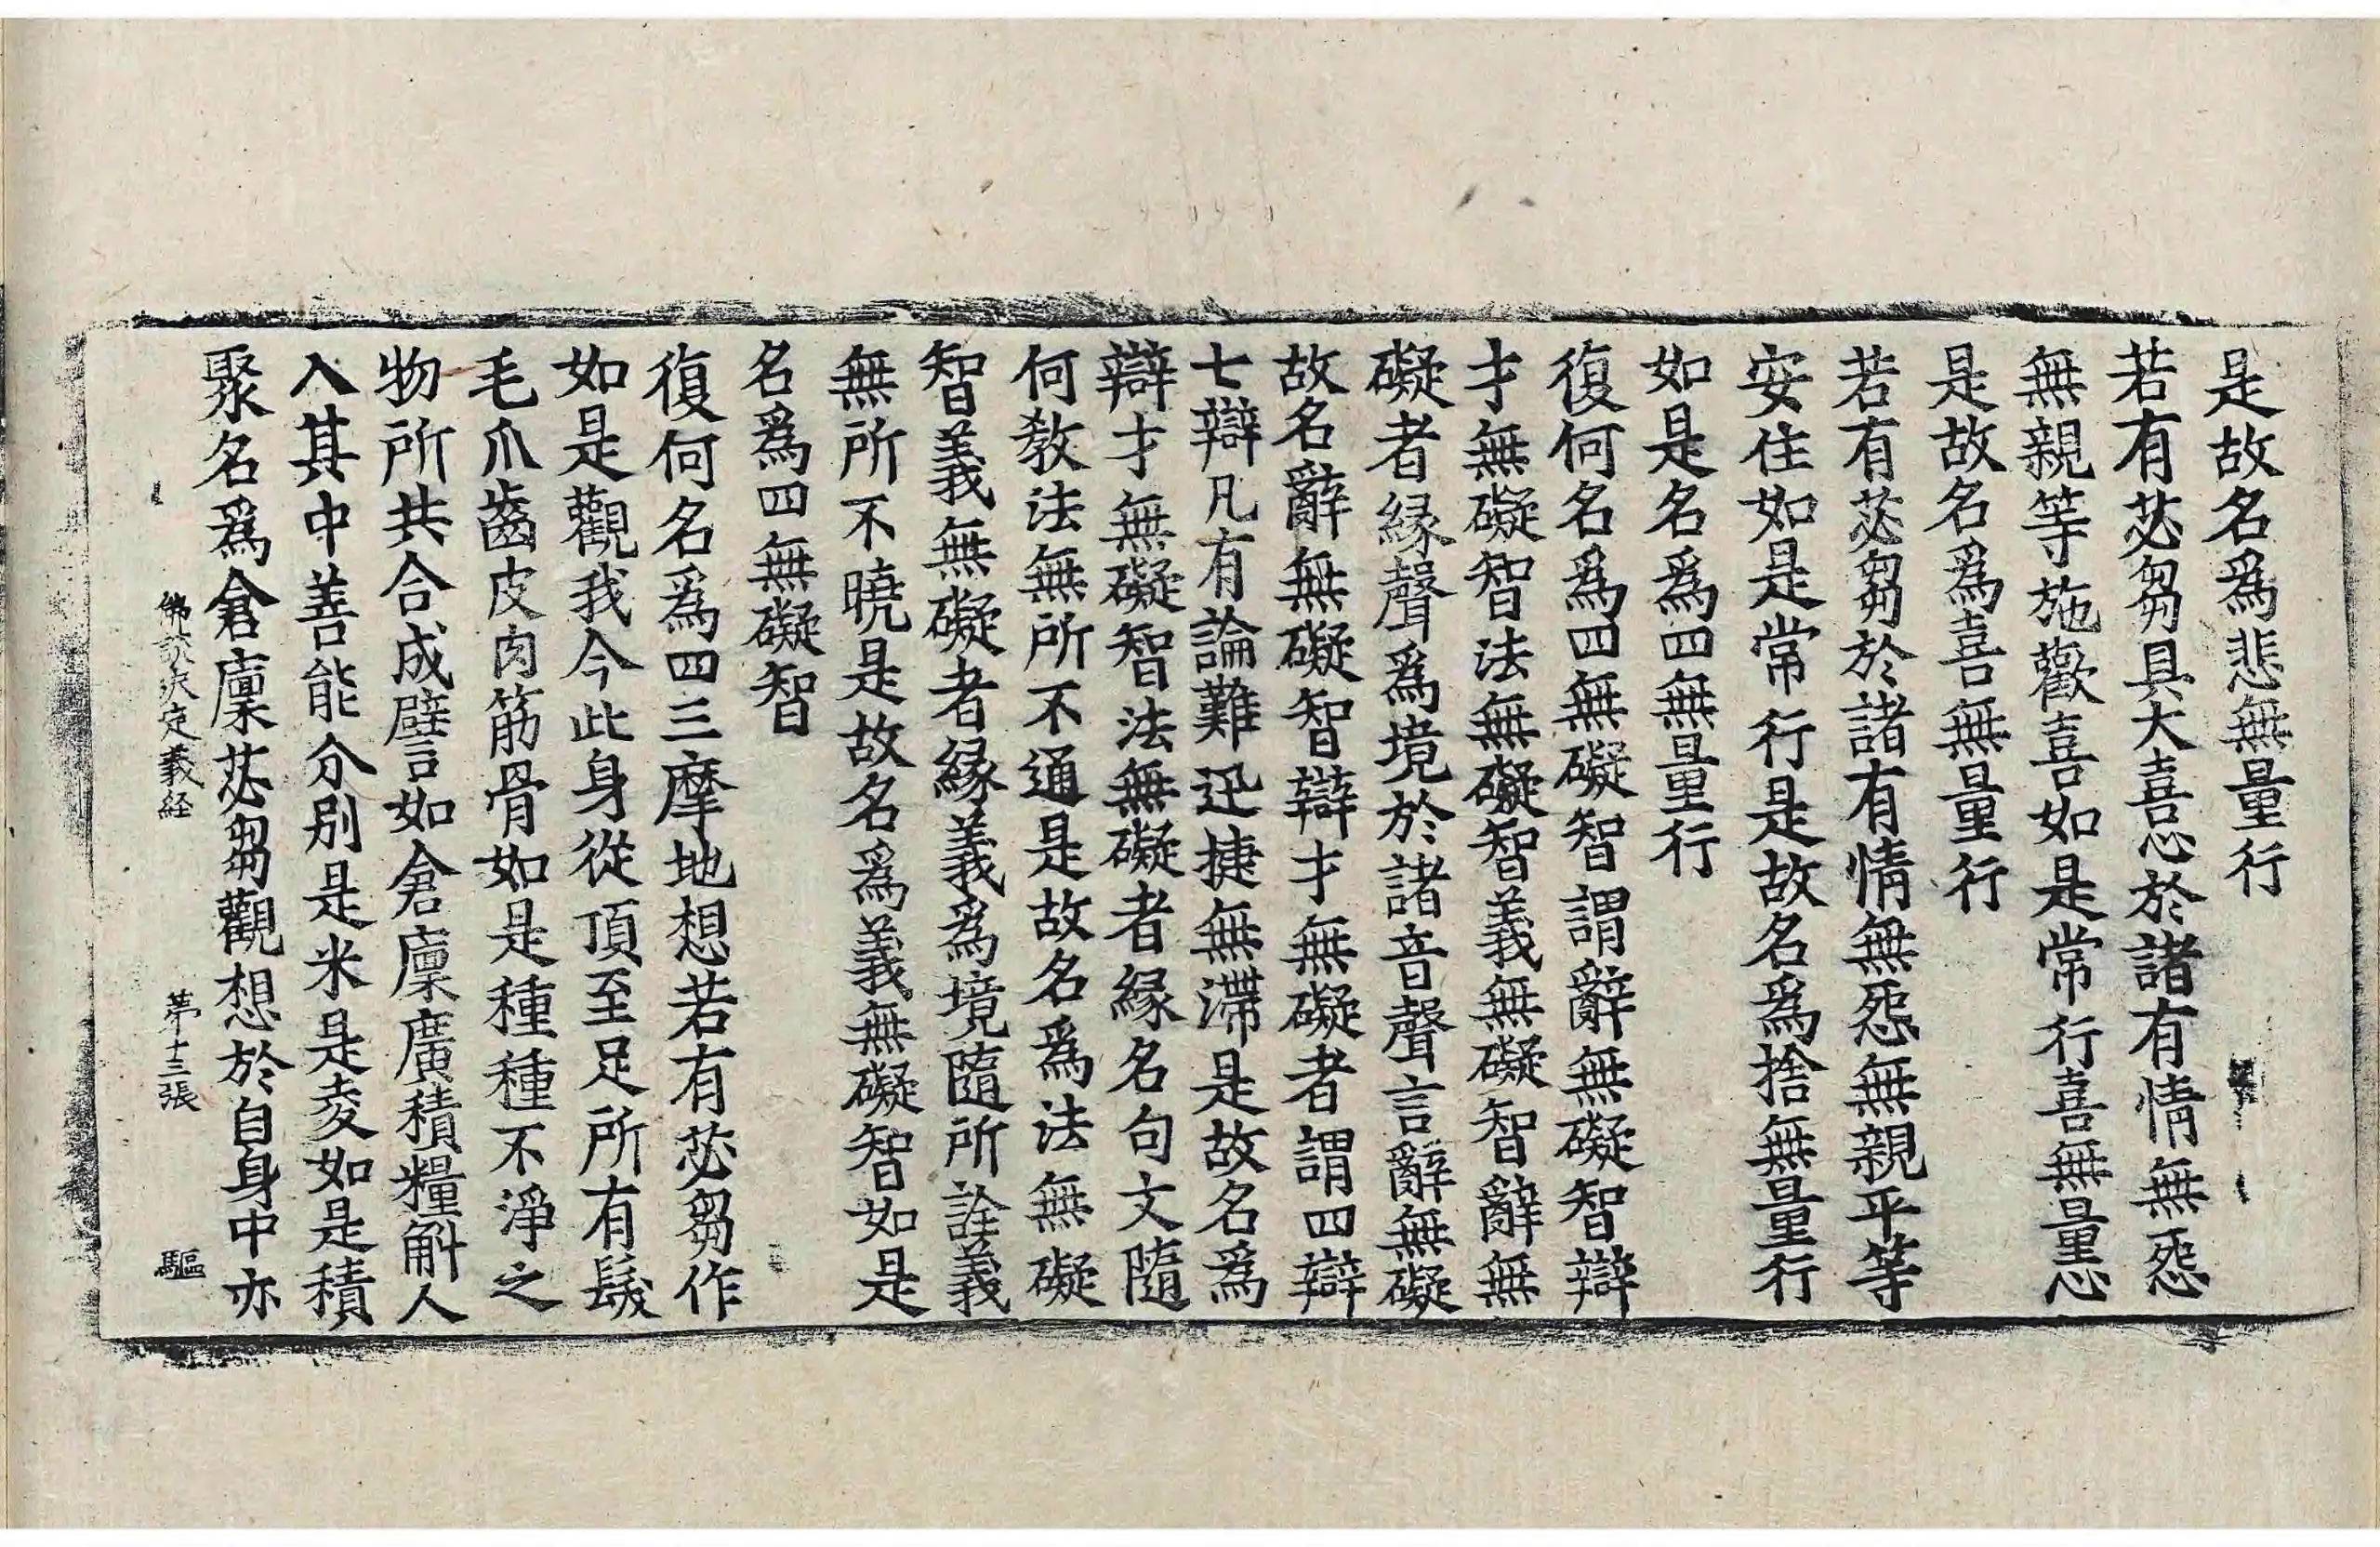 是故名爲悲無量行
若有苾芻具大喜忍於諸有情無怨
無親等施歡喜如是常行喜無量忍
是故名爲喜無量行
若有苾芻於諸有情無怨無親平等
安住如是常行是故名爲捨無量行
如是名爲四無量行
復何名爲四無礙智謂辭無礙智辯
才無礙智法無礙智義無礙智辭無
礙者縁聲爲境於諸音聲言辭無礙
故名辭無礙智辯才無礙者謂四辯
七辯凡有論難迅捷無滯是故名爲
辯才無礙智法無礙者縁名句文隨
何教法無所不通是故名爲法無礙
智義無礙者縁義爲境隨所詮義
無所不曉是故名爲義無礙智如是
名爲四無礙智
復何名爲四三摩地想若有苾芻作
如是觀我今此身從頂至足所有髮
毛爪齒皮肉筋骨如是種種不淨之
物所共合成譬如倉廩廣積糧斛人
入其中善能分別是米是麥如是積
聚名爲倉廩苾芻觀想於自身中亦
佛説决定義経 苐十三張 驅